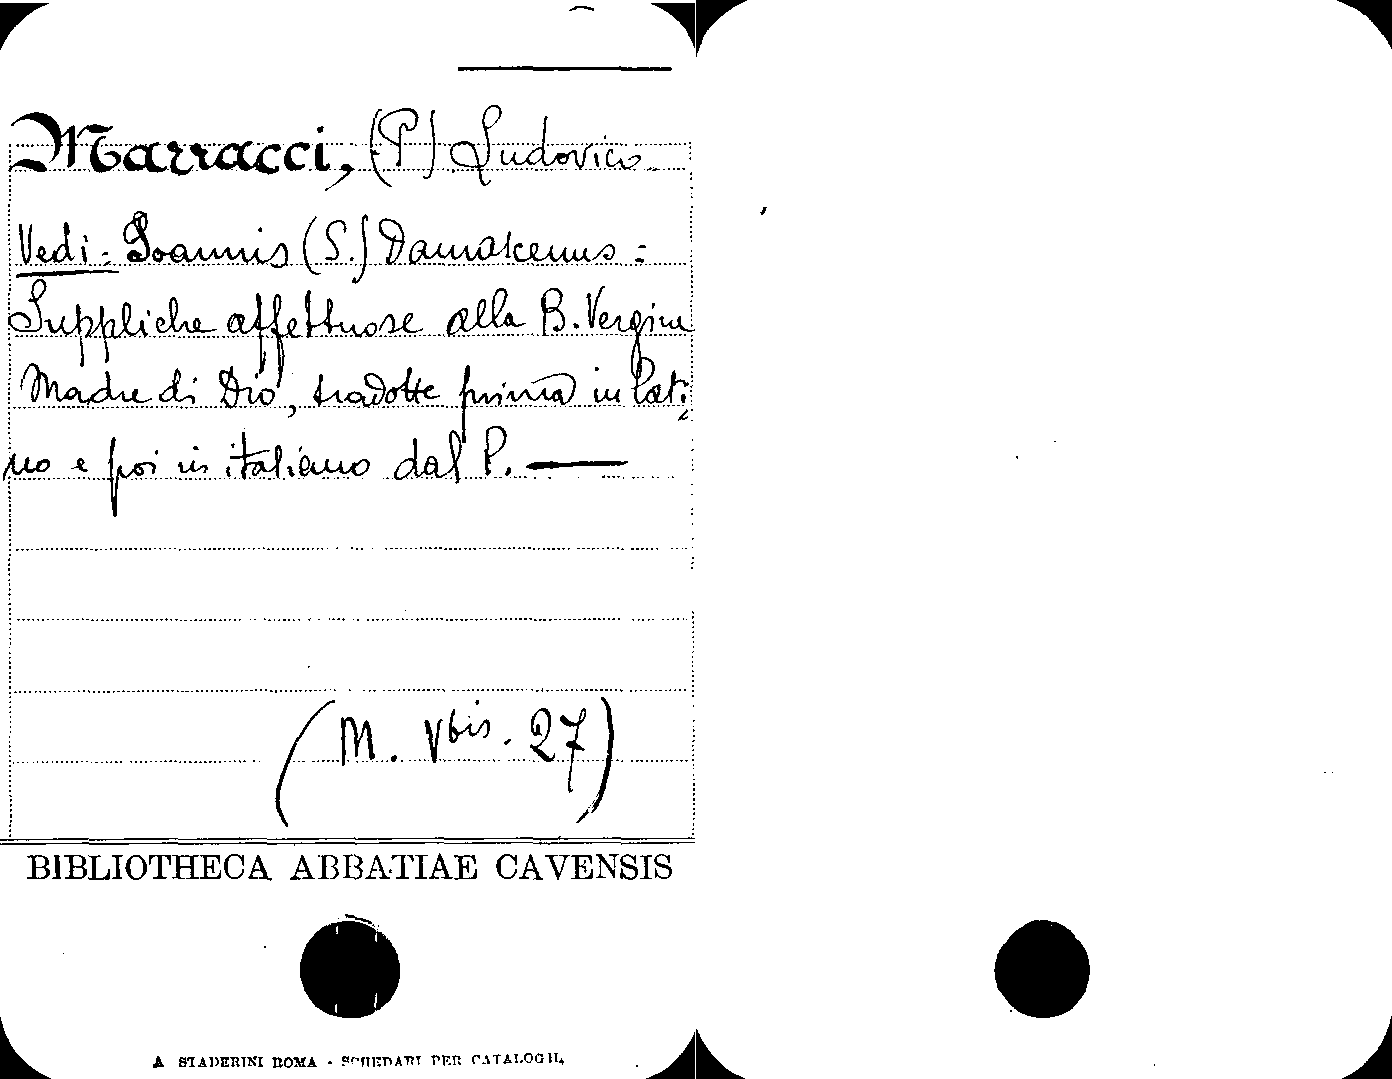 Marracci, (P) Ludovico.
Vedi: Joannis (S.) Damascenus:
Suppliche affettuose alla B. Vergine
Madre di Dio, tradotte prima in lati:
no e poi in italiano dal P. ——
(M. V bis. 27)
BIBLIOTHECA ABBATIAE CAVENSIS
A STADERINI ROMA - SCHEDARI PER CATALOGHI,